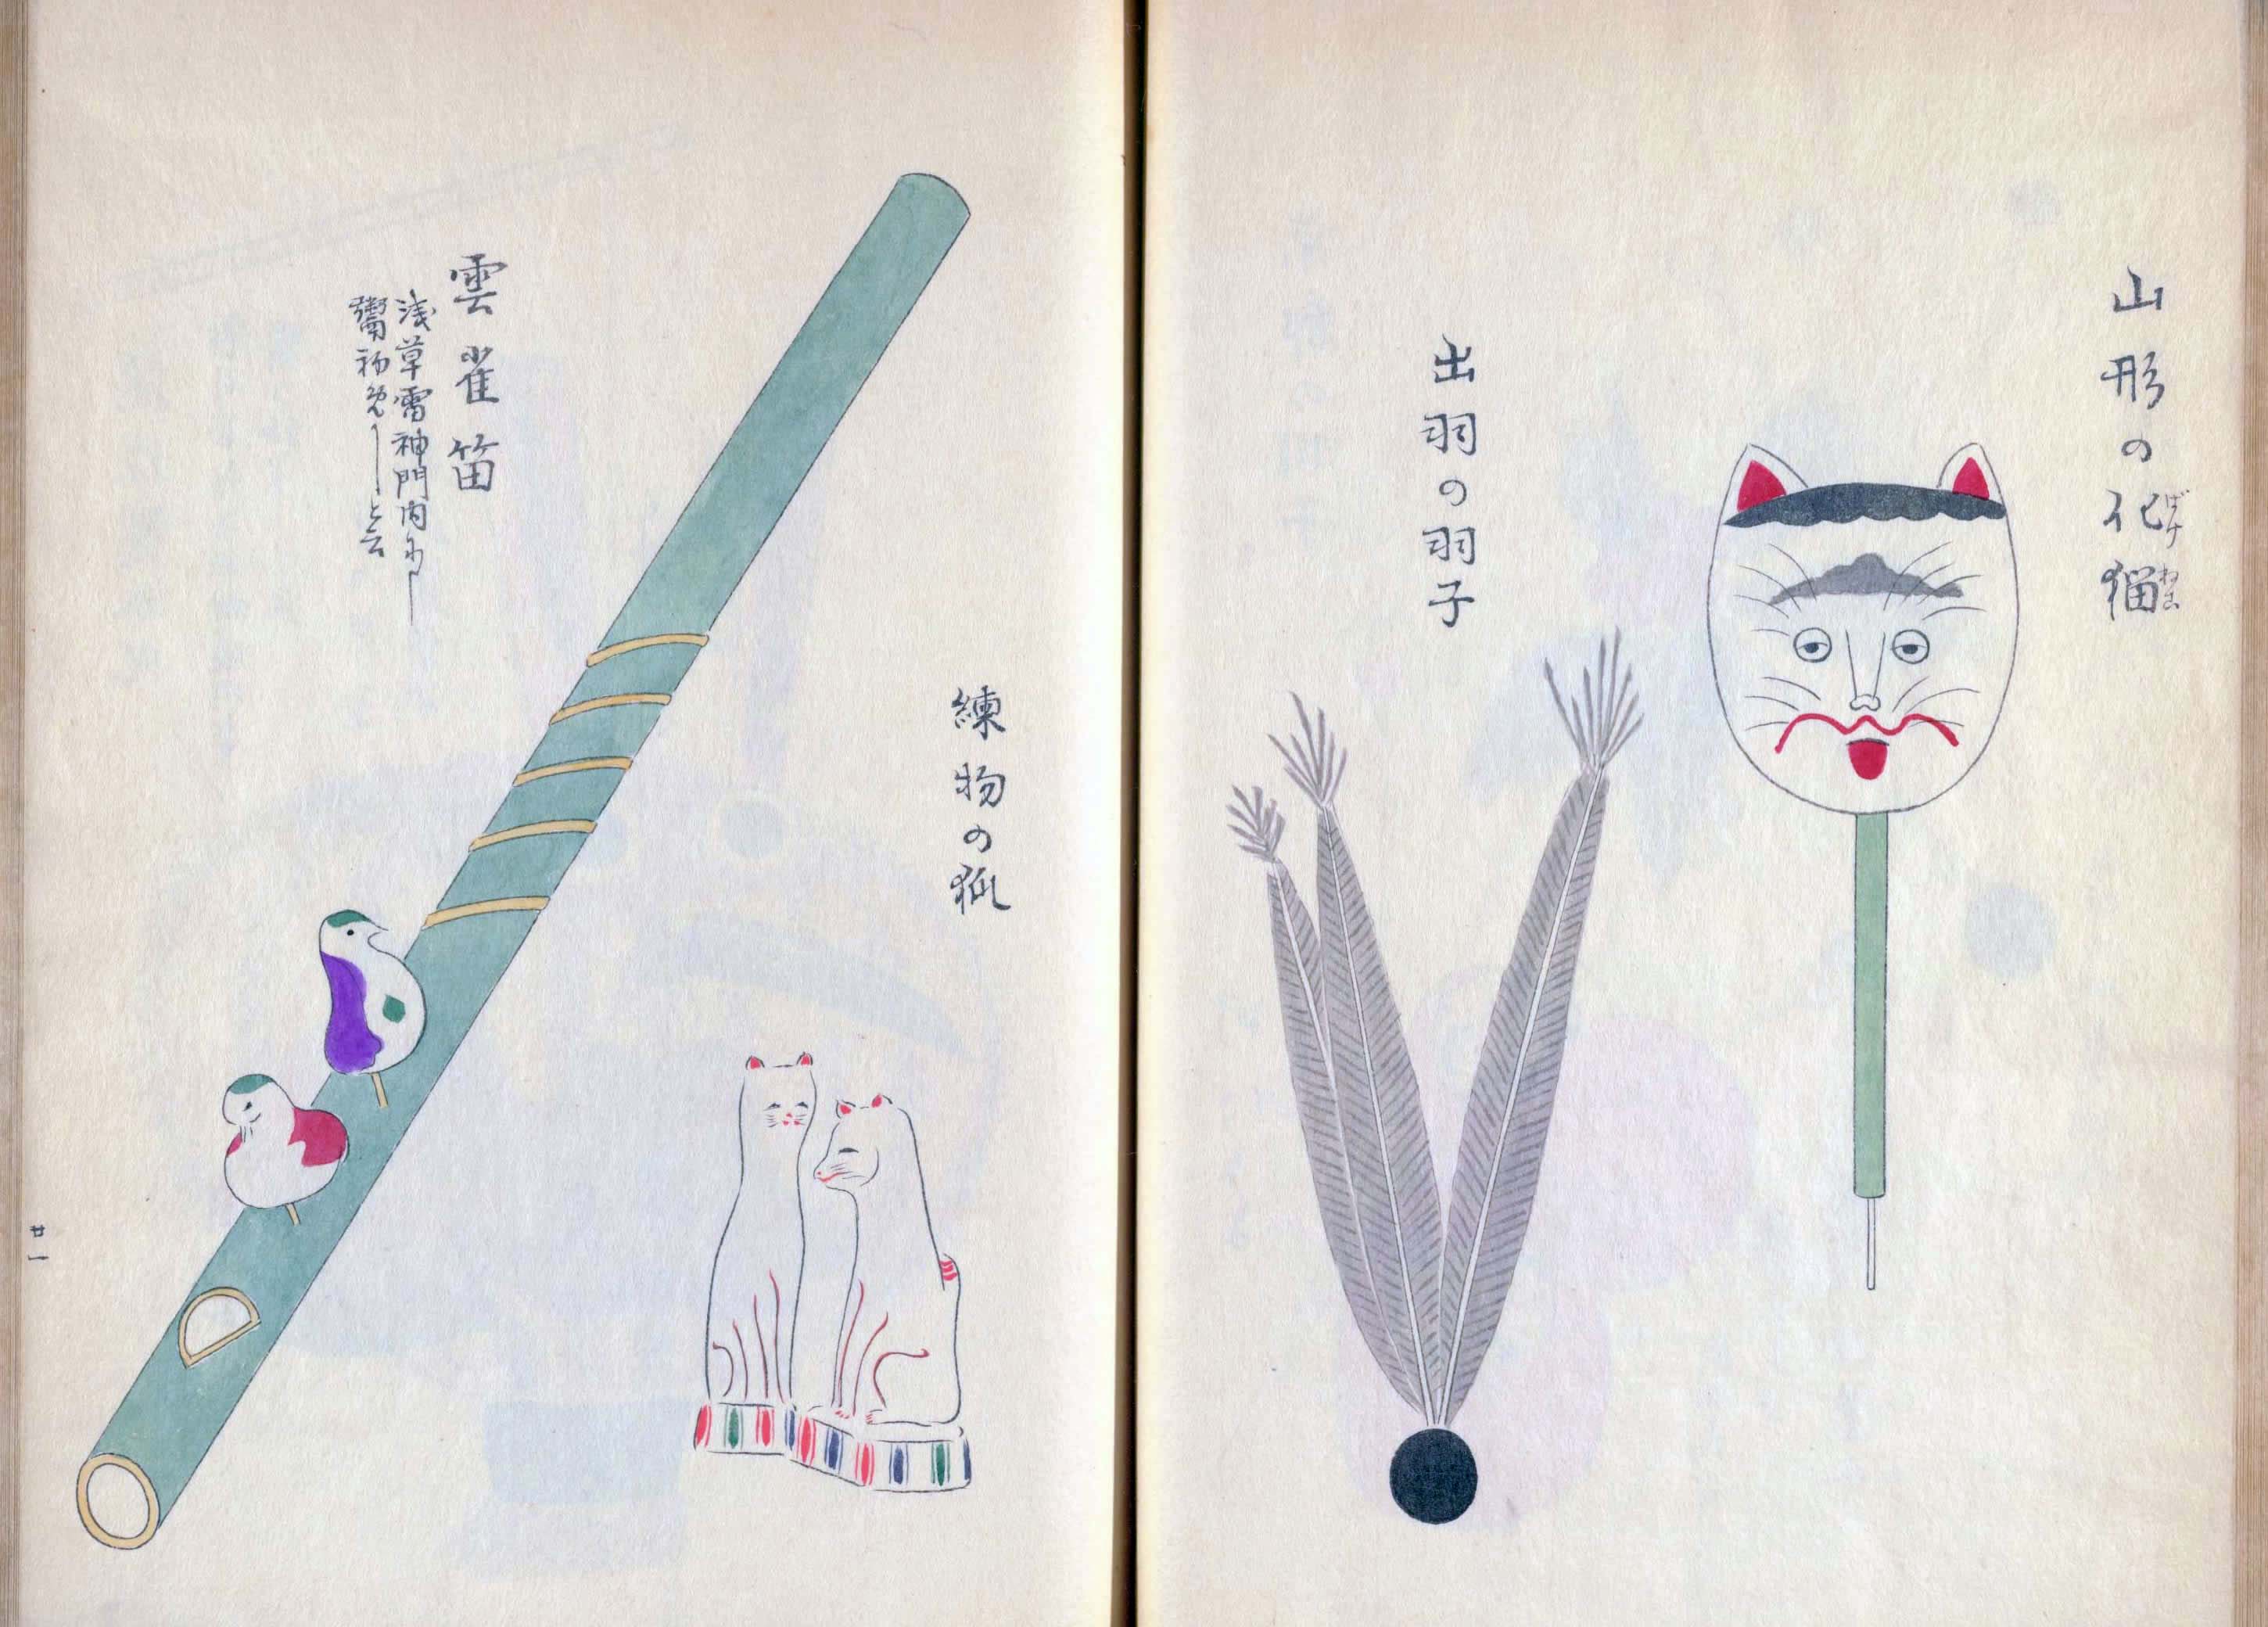 山形の化猫
ばけねこ
出羽の羽子
練物の狐
雲雀笛
浅草雷神門内にて
鬻初めしと云
廿一